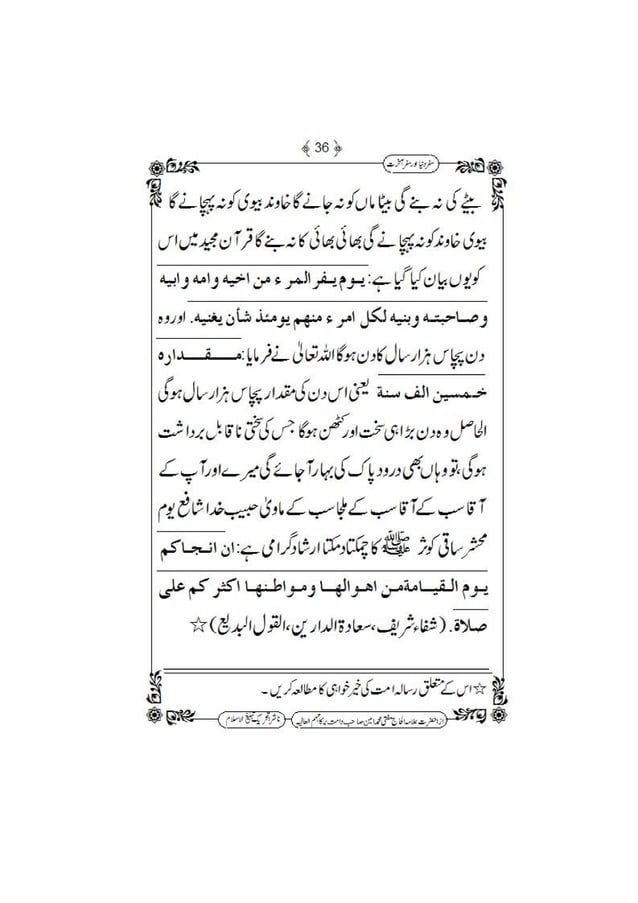 36
سفر دنیا اور سفر آخرت
بیٹے کی نہ بنے گی بیٹا ماں کو نہ جانے گا خاوند بیوی کو نہ پہچانے گا
بیوی خاوند کو نہ پہچانے گی بھائی بھائی کا نہ بنے گا قرآن مجید میں اس
کو یوں بیان کیا گیا ہے: یوم یفر المرء من اخیه وامه وابیه
وصاحبته وبنیه لکل امرء منهم یومئذ شأن یغنیه. اور وہ
دن پچاس ہزار سال کا دن ہوگا اللہ تعالیٰ نے فرمایا: مقداره
خمسین الف سنة یعنی اس دن کی مقدار پچاس ہزار سال ہوگی
الحاصل وہ دن بڑا ہی سخت اور کٹھن ہوگا جس کی سختی ناقابل برداشت
ہوگی، تو وہاں بھی درود پاک کی بہار آجائے گی میرے اور آپ کے
آقا سب کے آقا سب کے ملجا سب کے ماویٰ حبیب خدا شافع یوم
محشر ساقی کوثر ﷺ کا چمکتا دمکتا ارشاد گرامی ہے: ان انجاکم
یوم القیامة من اهوالها ومواطنها اکثرکم علی
صلاة. (شفاء شریف، سعادة الدارین، القول البدیع) ☆
☆ اس کے متعلق رسالہ امت کی خیر خواہی کا مطالعہ کریں۔
از: حضرت علامہ الحاج مفتی محمد امین صاحب دامت برکاتہم العالیہ
ناشر: تحریک تبلیغ الاسلام